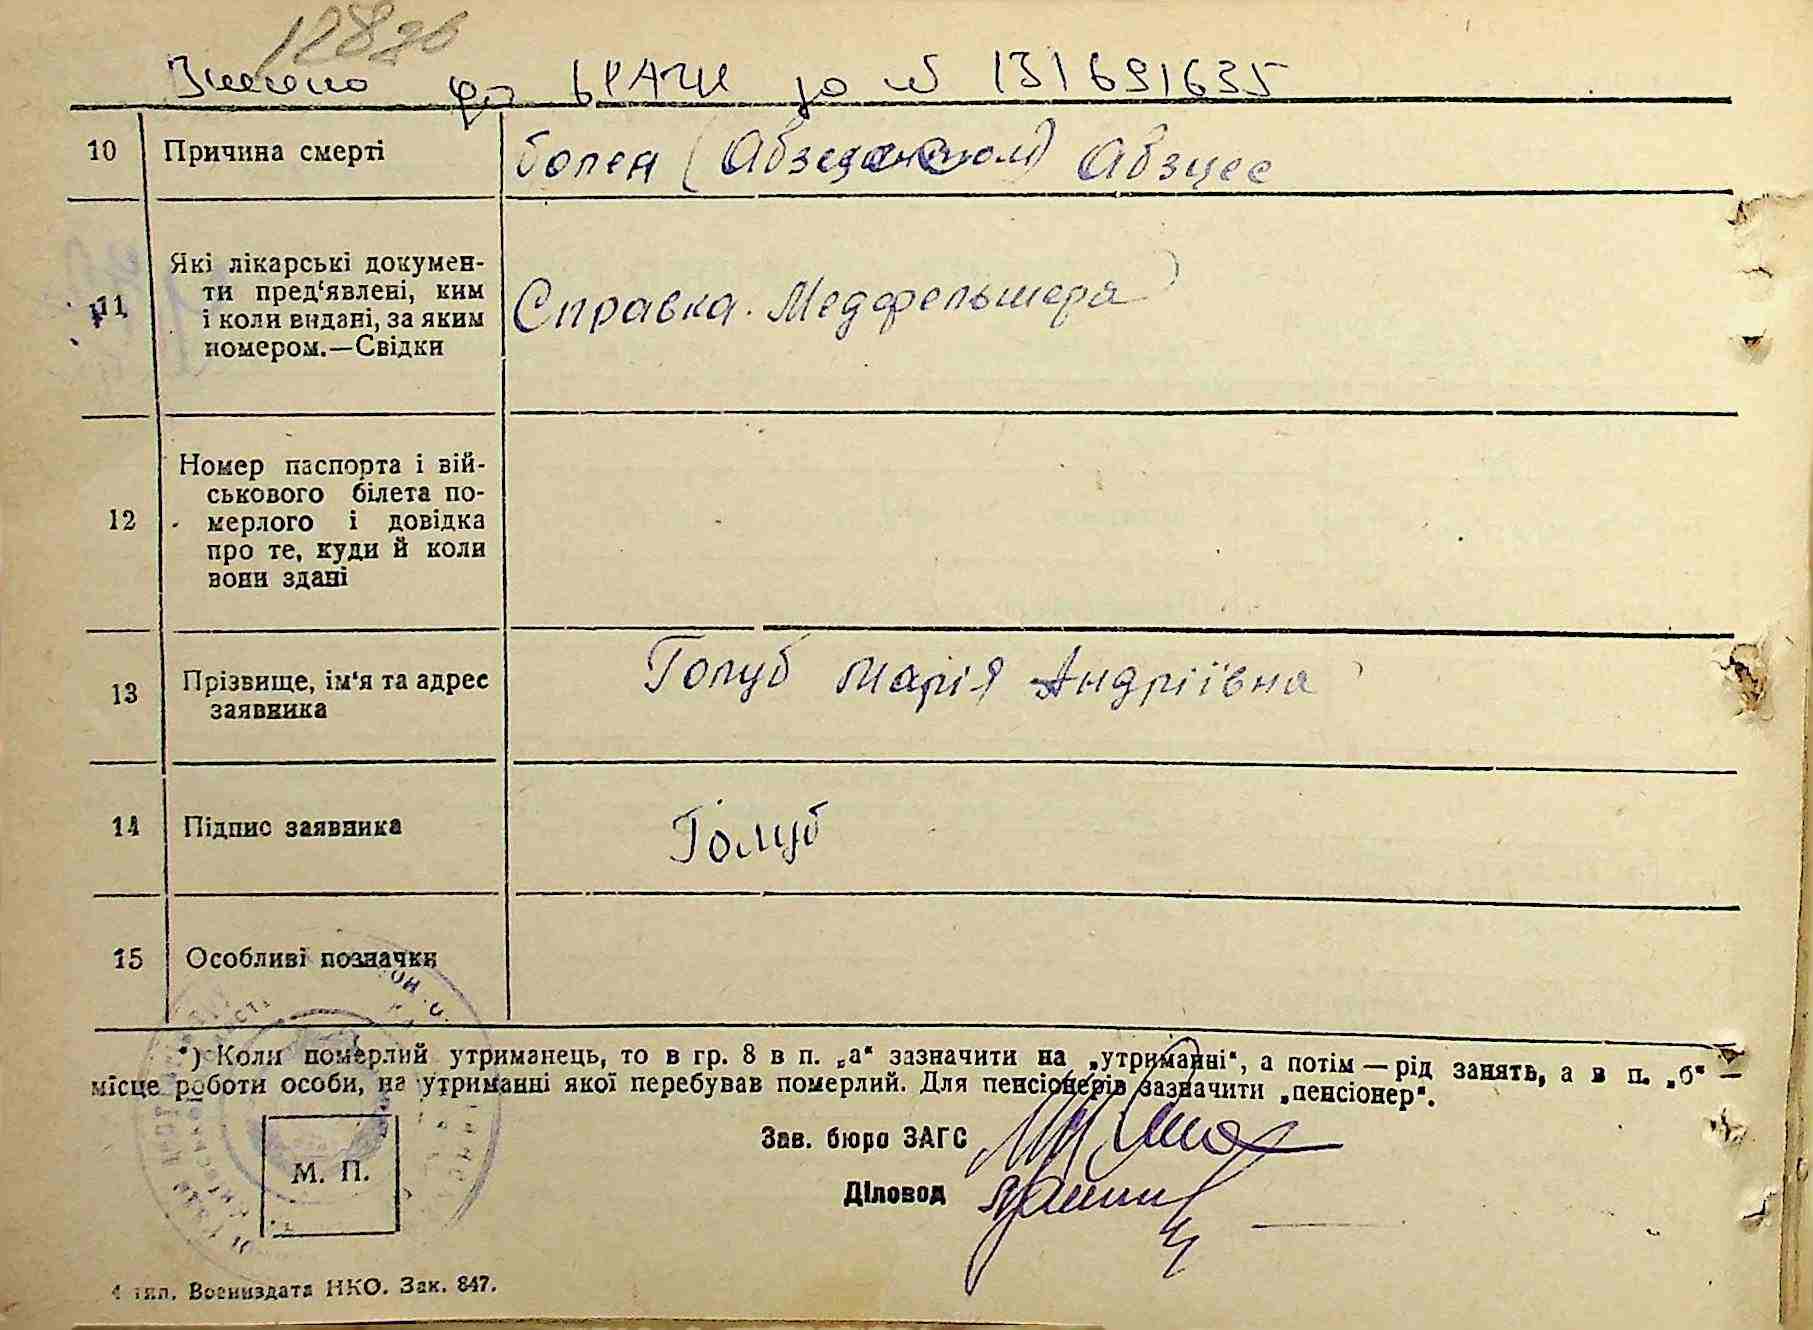 128зв
до ДРАЦС за № 131691635
10 Причина смерті болен ( ) Абзцес
11 Які лікарські докумен-
ти пред'явлені, ким
і коли видані, за яким
номером.—Свідки
Справка. Медфельшера
12 Номер паспорта і вій-
ськового білета по-
мерлого і довідка
про те, куди й коли
вони здані
13 Прізвище, ім'я та адрес
заявника
Голуб Марія Андріївна
14 Підпис заявника Голуб
15 Особливі позначки
*) Коли померлий утриманець, то в гр. 8 в п. „а“ зазначити на „утриманні“, а потім — рід занять, а в п. „б“ —
місце роботи особи, на утриманні якої перебував померлий. Для пенсіонерів зазначити „пенсіонер“.
Зав. бюро ЗАГС
Діловод
М. П.
4 тип. Воениздата НКО. Зак. 847.